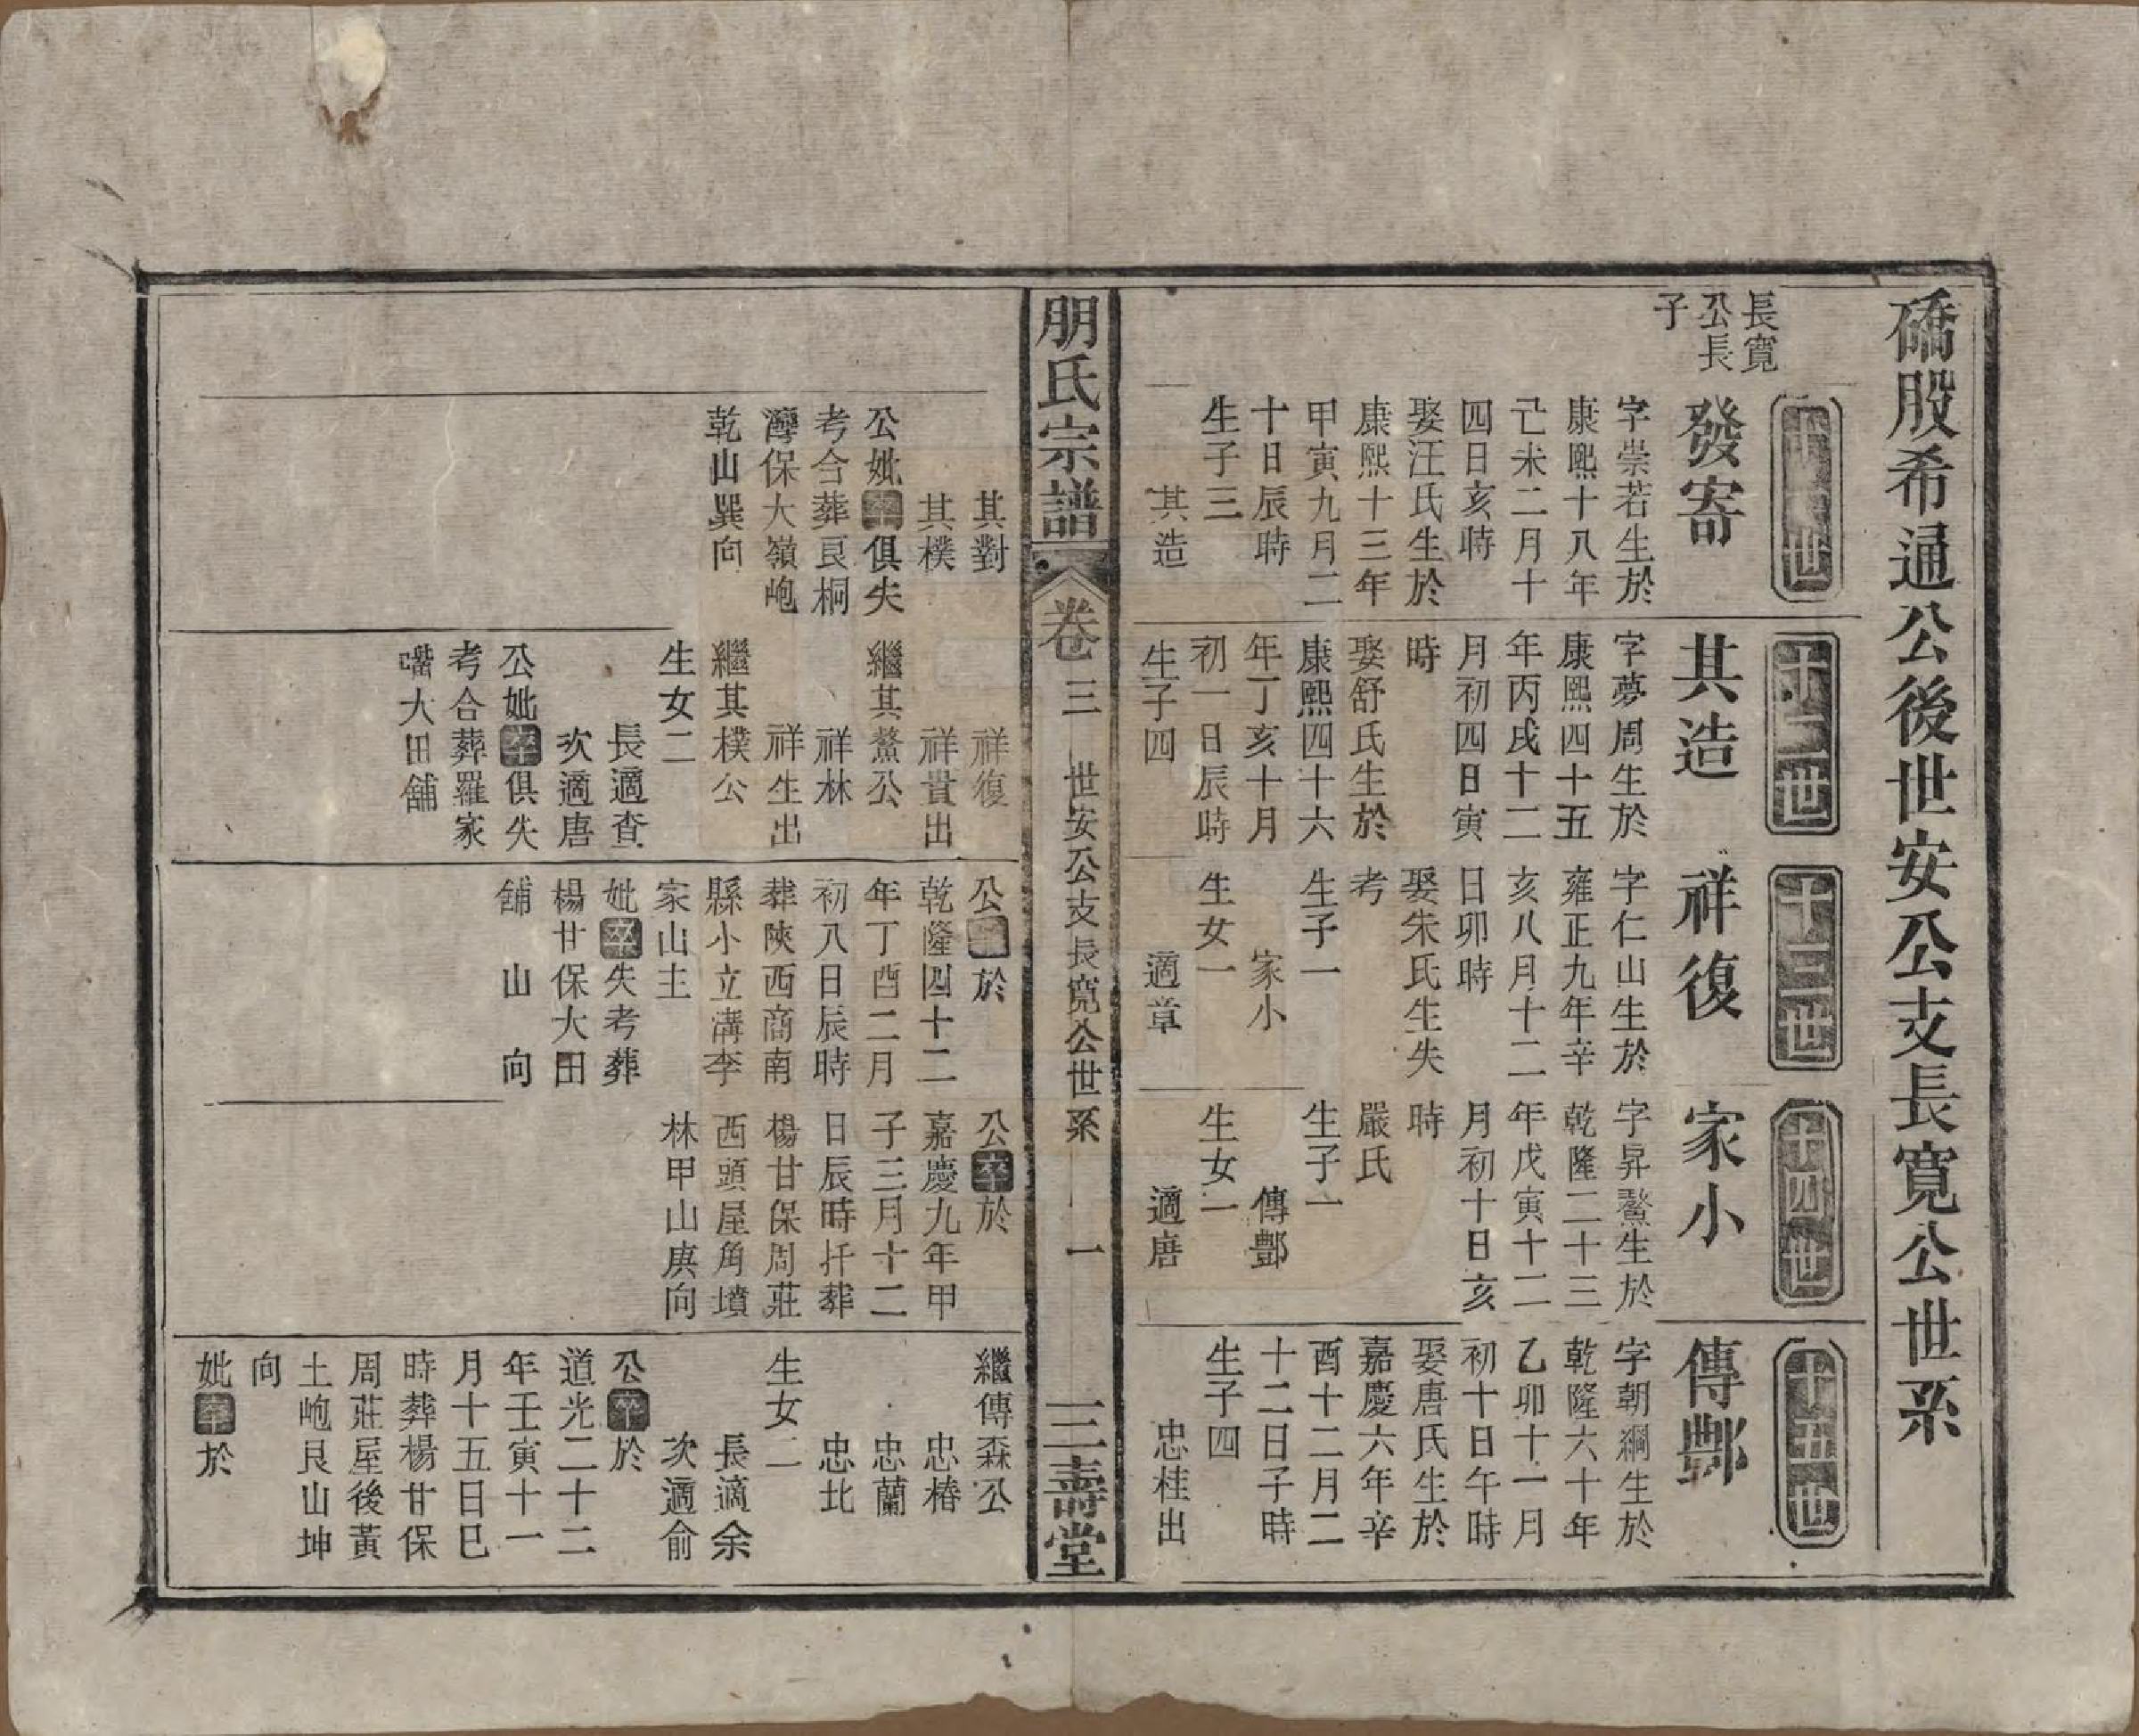 礄股希通公後世安公支長寬公世系
十一世
長寬
公長
子
發寄
字崇若生於
康熙十八年
己未二月十
四日亥時
娶汪氏生於
康熙十三年
甲寅九月二
十日辰時
生子三
其造
其對
其樸
公妣卒俱失
考合葬良桐
灣保大嶺岉
乾山巽向
十二世
其造
字夢周生於
康熙四十五
年丙戌十二
月初四日寅
時
娶舒氏生於
康熙四十六
年丁亥十月
初一日辰時
生子四
祥復
祥貴出
繼其鰲公
祥林
祥生出
繼其樸公
生女二
長適查
次適唐
公妣卒俱失
考合葬羅家
嘴大田舖
十三世
祥復
字仁山生於
雍正九年辛
亥八月十二
日卯時
娶朱氏生失
考
生子一
家小
生女一
適章
公卒於
乾隆四十二
年丁酉二月
初八日辰時
葬陝西商南
縣小立溝李
家山主
妣卒失考葬
楊甘保大田
舖山向
十四世
家小
字昇鰲生於
乾隆二十三
年戊寅十二
月初十日亥
時
嚴氏
生子一
傳酆
生女一
適唐
公卒於
嘉慶九年甲
子三月十二
日辰時扦葬
楊甘保周莊
西頭屋角墳
林甲山庚向
十五世
傳酆
字朝綱生於
乾隆六十年
乙卯十一月
初十日午時
娶唐氏生於
嘉慶六年辛
酉十二月二
十二日子時
生子四
忠桂出
繼傳森公
忠椿
忠蘭
忠北
生女二
長適余
次適俞
公卒於
道光二十二
年壬寅十一
月十五日巳
時葬楊甘保
周莊屋後黃
土岉艮山坤
向
妣卒於
朋氏宗譜
卷三
世安公支長寬公世系
一
三壽堂